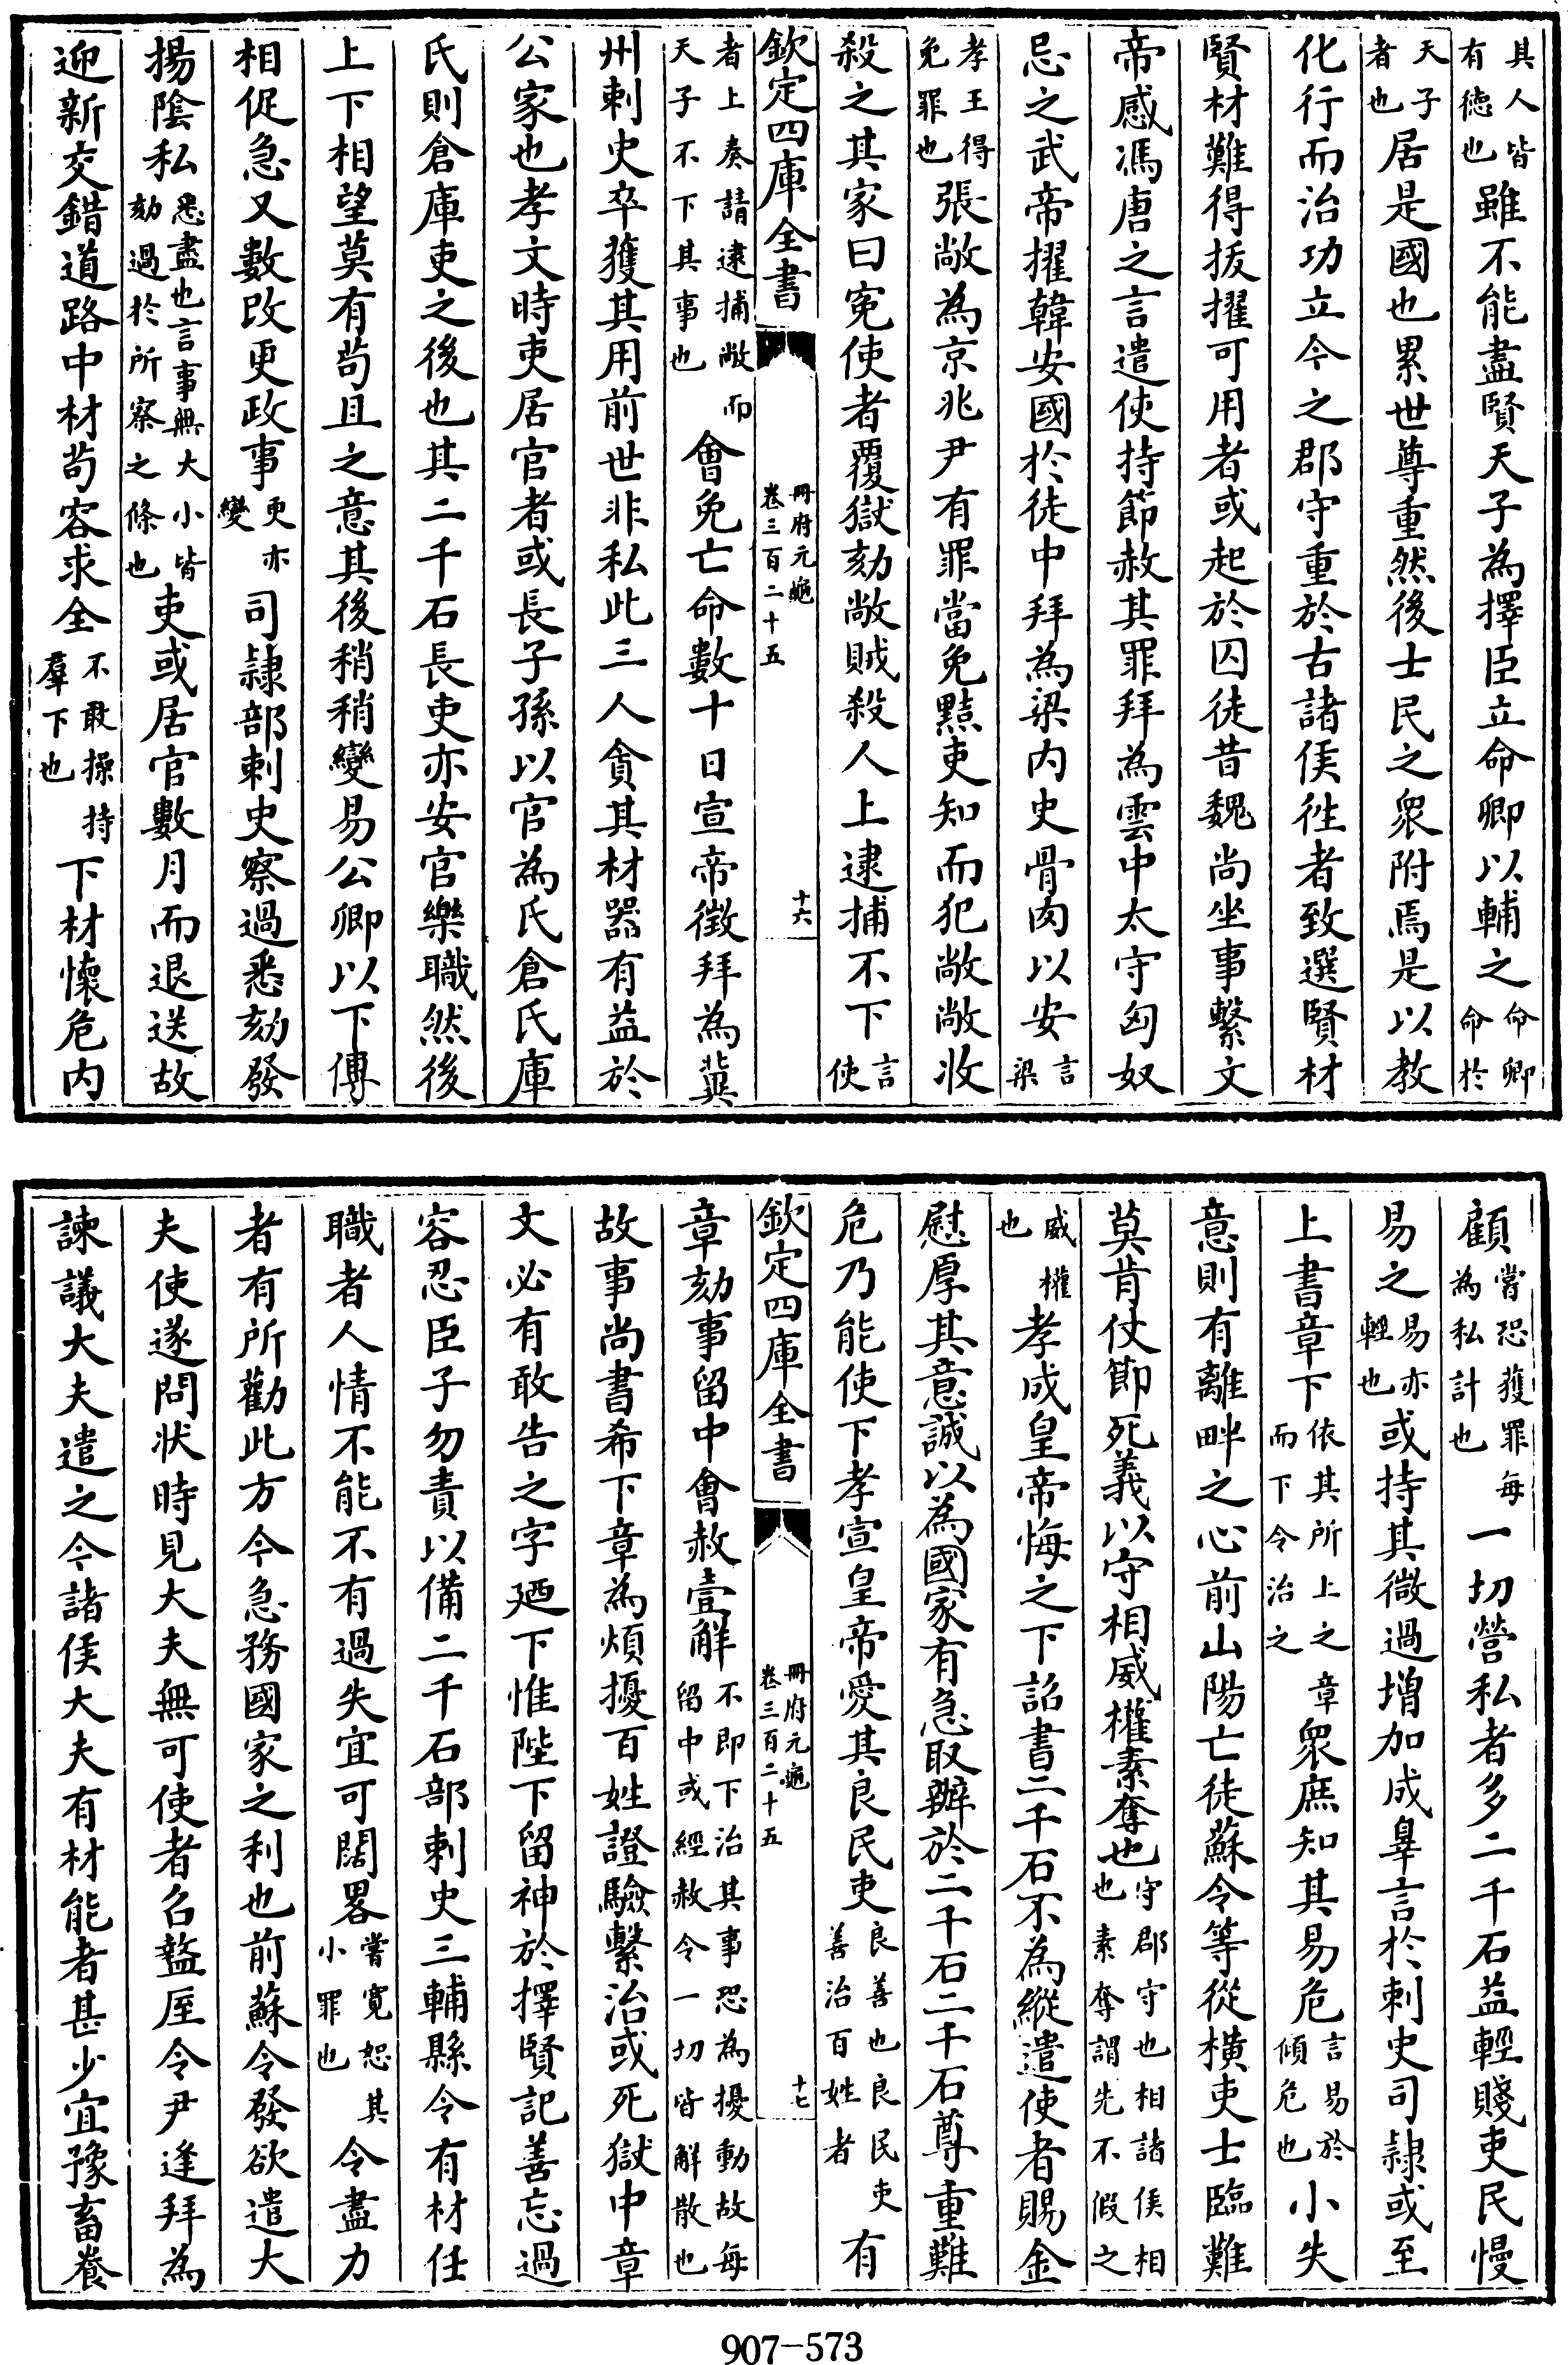 其人皆有徳也雖不能盡賢天子為擇臣立命卿以輔之命卿命於
天子者也居是國也累世尊重然後士民之衆附焉是以教
化行而治功立今之郡守重於古諸侯徃者致選賢材
賢材難得拔擢可用者或起於囚徒昔魏尚坐事繫文
帝感馮唐之言遣使持節赦其罪拜為雲中太守匈奴
忌之武帝擢韓安國於徒中拜為梁内史骨肉以安言梁
孝王得免罪也張敞為京兆尹有罪當免黠吏知而犯敞敞收
殺之其家曰寃使者覆獄劾敞賊殺人上逮捕不下言使
欽定四庫全書 冊府元龜卷三百二十五 十六
者上奏請逮捕敞而天子不下其事也會免亡命數十日宣帝徵拜為冀
州刺史卒獲其用前世非私此三人貪其材器有益於
公家也孝文時吏居官者或長子孫以官為氏倉氏庫
氏則倉庫吏之後也其二千石長吏亦安官樂職然後
上下相望莫有茍且之意其後稍稍變易公卿以下傳
相促急又數改更政事更亦變司隷部刺史察過悉劾發
揚隂私悉盡也言事無大小皆劾過於所察之條也吏或居官數月而退送故
迎新交錯道路中材茍容求全不敢操持羣下也下材懷危内
顧嘗恐獲罪每為私計也一切營私者多二千石益輕賤吏民慢
易之易亦輕也或持其微過增加成辠言於刺史司隷或至
上書章下依其所上之章而下令治之衆庶知其易危言易於傾危也小失
意則有離畔之心前山陽亡徒蘇令等從横吏士臨難
莫肯仗節死義以守相威權素奪也守郡守也相諸侯相也素奪謂先不假之
威權也孝成皇帝悔之下詔書二千石不為縱遣使者賜金
慰厚其意誠以為國家有急取辦於二千石二千石尊重難
危乃能使下孝宣皇帝愛其良民吏良善也良民吏善治百姓者有
欽定四庫全書 冊府元龜卷三百二十五 十七
章劾事留中會赦壹解不即下治其事恐為擾動故每留中或經赦令一切皆解散也
故事尚書希下章為煩擾百姓證驗繫治或死獄中章
文必有敢告之字廼下惟陛下留神於擇賢記善忘過
容忍臣子勿責以備二千石部刺史三輔縣令有材任
職者人情不能不有過失宜可闊畧嘗寛恕其小罪也令盡力
者有所勸此方今急務國家之利也前蘇令發欲遣大
夫使逐問狀時見大夫無可使者召盩厔令尹逢拜為
諫議大夫遣之今諸侯大夫有材能者甚少宜豫畜養
907-573